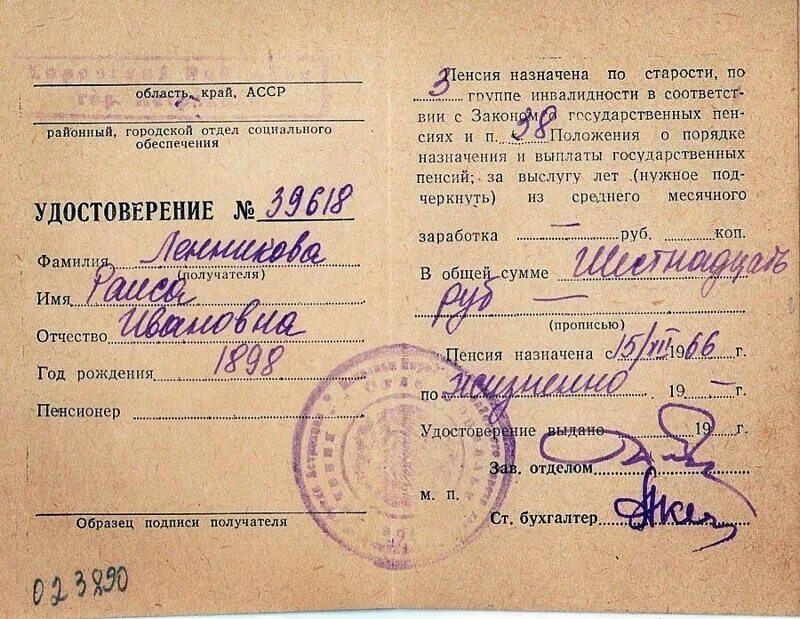 область, край, АССР
районный, городской отдел социального
обеспечения
УДОСТОВЕРЕНИЕ № 39618
Фамилия Ленникова
(получателя)
Имя Раиса
Отчество Ивановна
Год рождения 1898
Пенсионер
Образец подписи получателя
023890
Пенсия назначена по старости, по
3 группе инвалидности в соответст-
вии с Законом о государственных пен-
сиях и п. 38 Положения о порядке
назначения и выплаты государственных
пенсий; за выслугу лет (нужное под-
черкнуть) из среднего месячного
заработка — руб. коп.
В общей сумме Шестнадцать
руб —
(прописью)
Пенсия назначена с 15/VII 1966 г.
по жизненно 19 — г.
Удостоверение выдано 19 г.
Зав. отделом
м. п.
Ст. бухгалтер